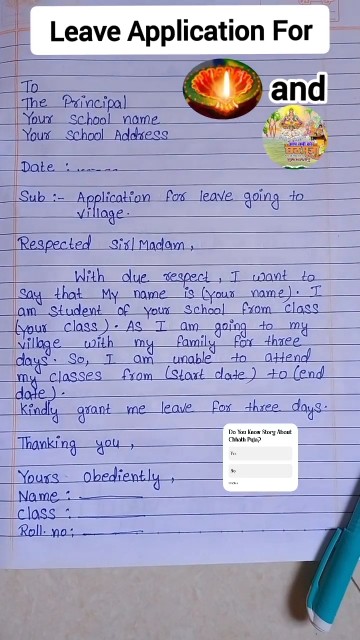 Leave Application For
and
To
The Principal
Your school name
Your School Address
Date : ......
Sub :- Application for leave going to
village.
Respected Sir/Madam,
With due respect, I want to
say that My name is (your name). I
am student of your school from class
(your class). As I am going to my
village with my family for three
days. So, I am unable to attend
my classes from (start date) to (end
date).
Kindly grant me leave for three days.
Thanking you,
Yours Obediently,
Name :
Class :
Roll. no:
Do You Know Story About
Chhath Puja?
No